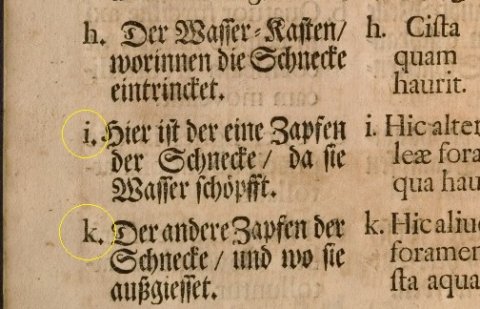 h. Der Wasser-Kasten/
worinnen die Schnecke
eintrincket.
i. Hier ist der eine Zapfen
der Schnecke / da sie
Wasser schöpfft.
k. Der andere Zapfen der
Schnecke / und wo sie
außgiesset.
h. Cista
quam
haurit.
i. Hic alter
leæ fora
qua hau
k. Hic aliud
foramen
sta aqua